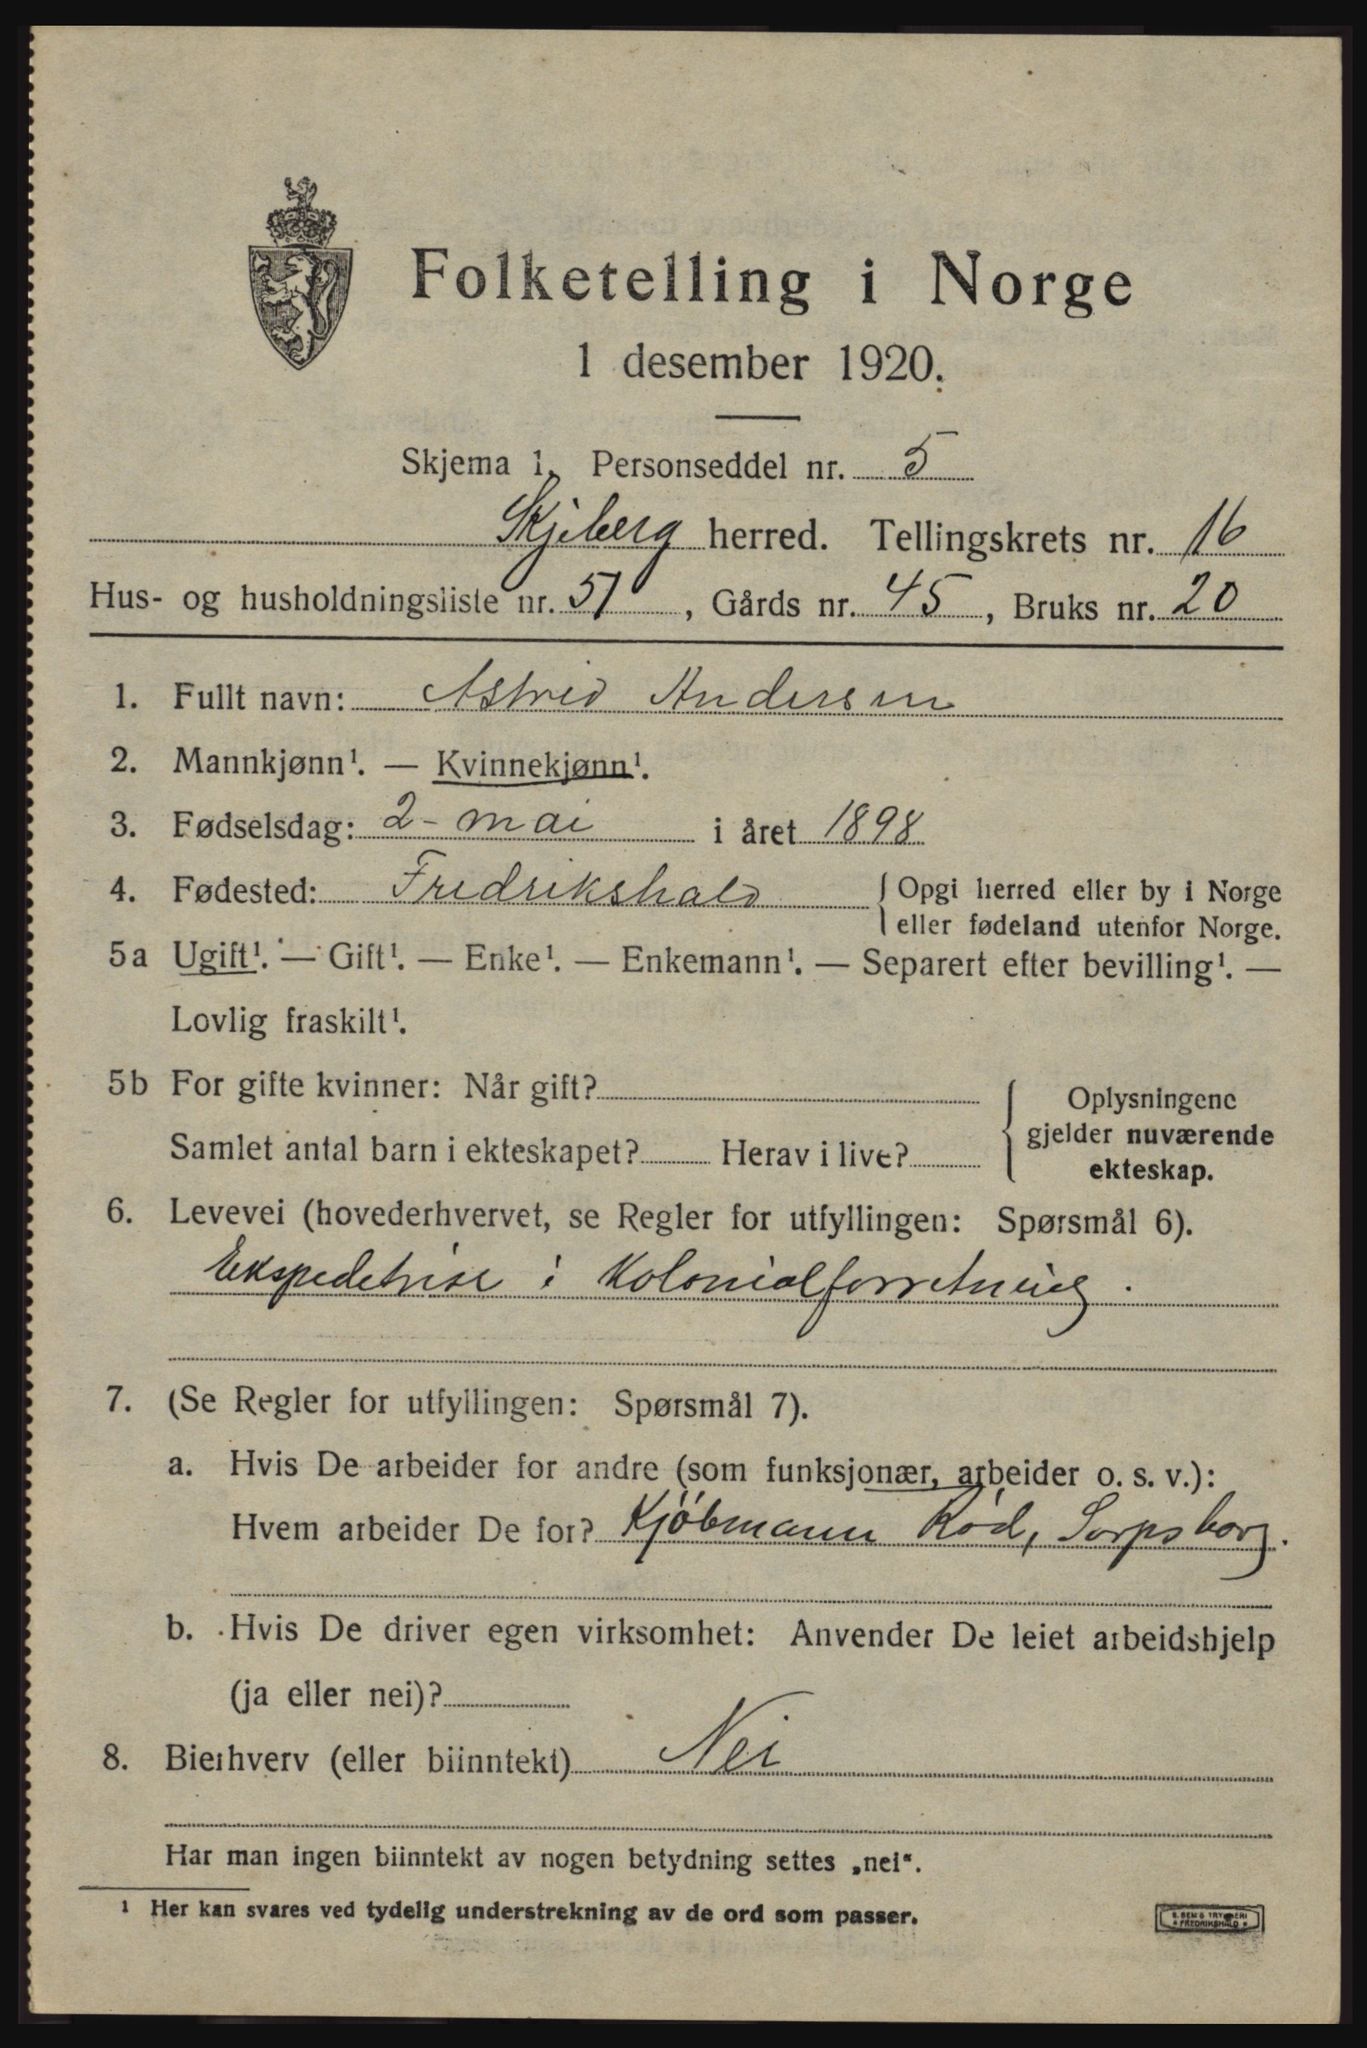 Folketelling i Norge
1 desember 1920.
Skjema 1. Personseddel nr. 5
Skjeberg herred. Tellingskrets nr. 16
Hus- og husholdningsliste nr. 51, Gårds nr. 45, Bruks nr. 20
1. Fullt navn: Astrid Andersen
2. Mannkjønn¹. — Kvinnekjønn¹.
3. Fødselsdag: 2 - mai i året 1898
4. Fødested: Fredrikshald { Opgi herred eller by i Norge
eller fødeland utenfor Norge.
5a Ugift¹. — Gift¹. — Enke¹. — Enkemann¹. — Separert efter bevilling¹. —
Lovlig fraskilt¹.
5b For gifte kvinner: Når gift?
Samlet antal barn i ekteskapet? Herav i live?
Oplysningene
gjelder nuværende
ekteskap.
6. Levevei (hovederhvervet, se Regler for utfyllingen: Spørsmål 6).
Ekspeditrise i Kolonialforretning.
7. (Se Regler for utfyllingen: Spørsmål 7).
a. Hvis De arbeider for andre (som funksjonær, arbeider o. s. v.):
Hvem arbeider De for? Kjøbmann Rød, Sarpsborg.
b. Hvis De driver egen virksomhet: Anvender De leiet arbeidshjelp
(ja eller nei)?
8. Bierhverv (eller biinntekt) Nei
Har man ingen biinntekt av nogen betydning settes „nei“.
¹ Her kan svares ved tydelig understrekning av de ord som passer.
E. SEM'S TRYKKERI
FREDRIKSHALD